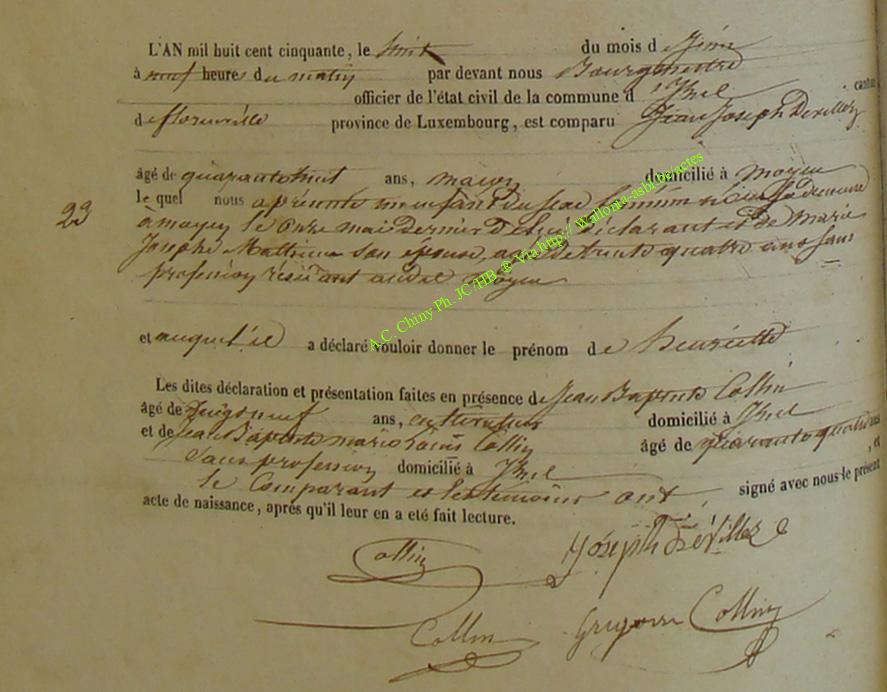 L'AN mil huit cent cinquante, le huit du mois de Juin
à neuf heures du matin par devant nous Bourgmestre
officier de l'état civil de la commune d'Izel canton
de florenville province de Luxembourg, est comparu Jean Joseph Devillez
âgé de quarante huit ans, maçon domicilié à moyen
le quel nous a présenté un enfant du sexe féminin né en sa demeure
23
à moyen le onze mai dernier de lui déclarant et de Marie
Josephe Mathieu son épouse, agée de trente quatre ans sans
profession résidant audit moyen
et auquel il a déclaré vouloir donner le prénom de henriette
Les dites déclaration et présentation faites en présence de Jean Baptiste Collin
âgé de ans, cultivateur domicilié à Izel
et de Jean Baptiste marie Louis Collin âgé de quarante quatre ans
sans profession domicilié à Izel, et
le Comparant et les temoins ont signé avec nous le présent
acte de naissance, après qu'il leur en a été fait lecture.
Collin Joseph Dévillez
Collin Grégoire Collin
A.C. Chiny Ph. JC /HB. ® Via http:// Wallonia-asbl.be/actes